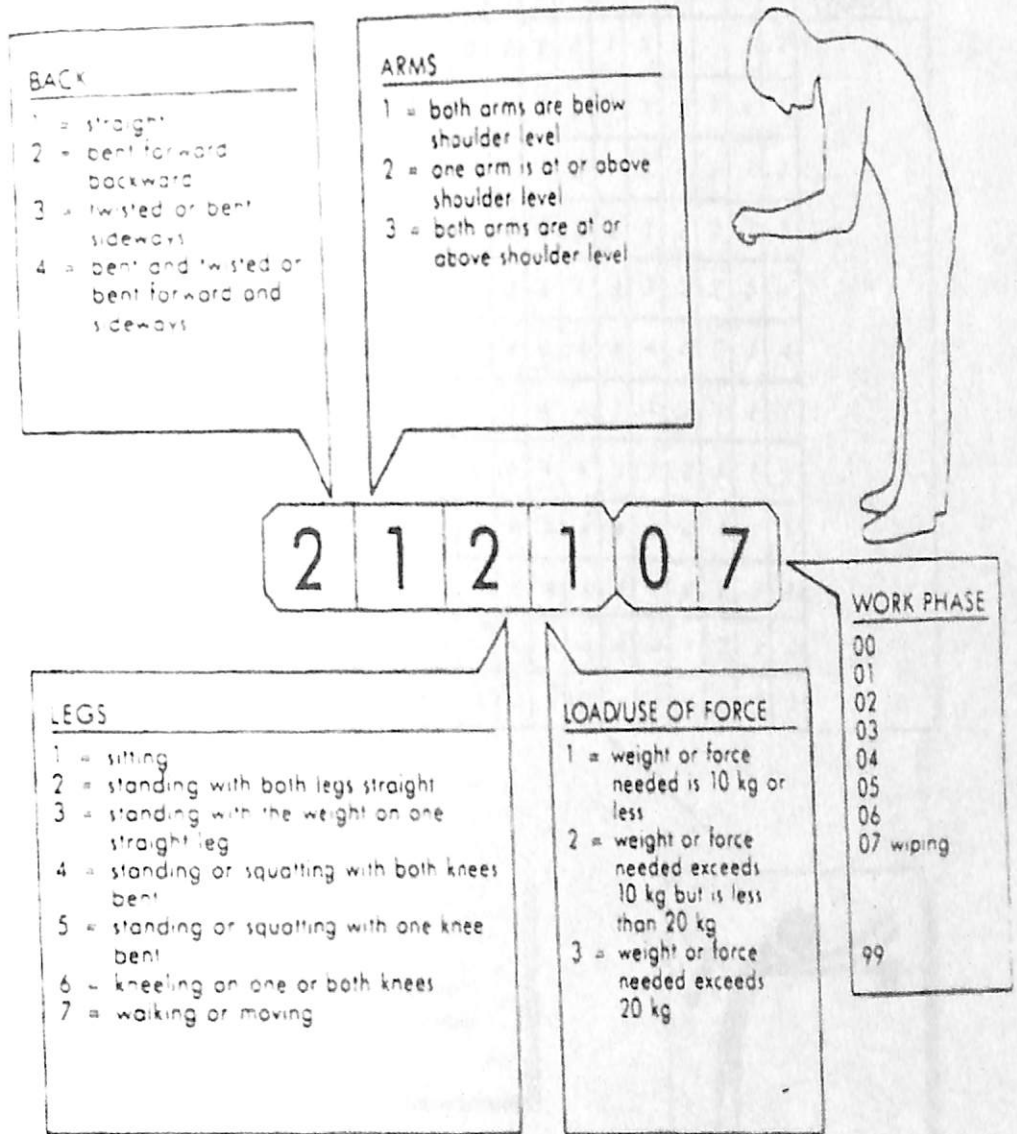 BACK
1 = straight
2 = bent forward
backward
3 = twisted or bent
sideways
4 = bent and twisted or
bent forward and
sideways
ARMS
1 = both arms are below
shoulder level
2 = one arm is at or above
shoulder level
3 = both arms are at or
above shoulder level
2 1 2 1 0 7
LEGS
1 = sitting
2 = standing with both legs straight
3 = standing with the weight on one
straight leg
4 = standing or squatting with both knees
bent
5 = standing or squatting with one knee
bent
6 = kneeling on one or both knees
7 = walking or moving
LOAD/USE OF FORCE
1 = weight or force
needed is 10 kg or
less
2 = weight or force
needed exceeds
10 kg but is less
than 20 kg
3 = weight or force
needed exceeds
20 kg
WORK PHASE
00
01
02
03
04
05
06
07 wiping
99